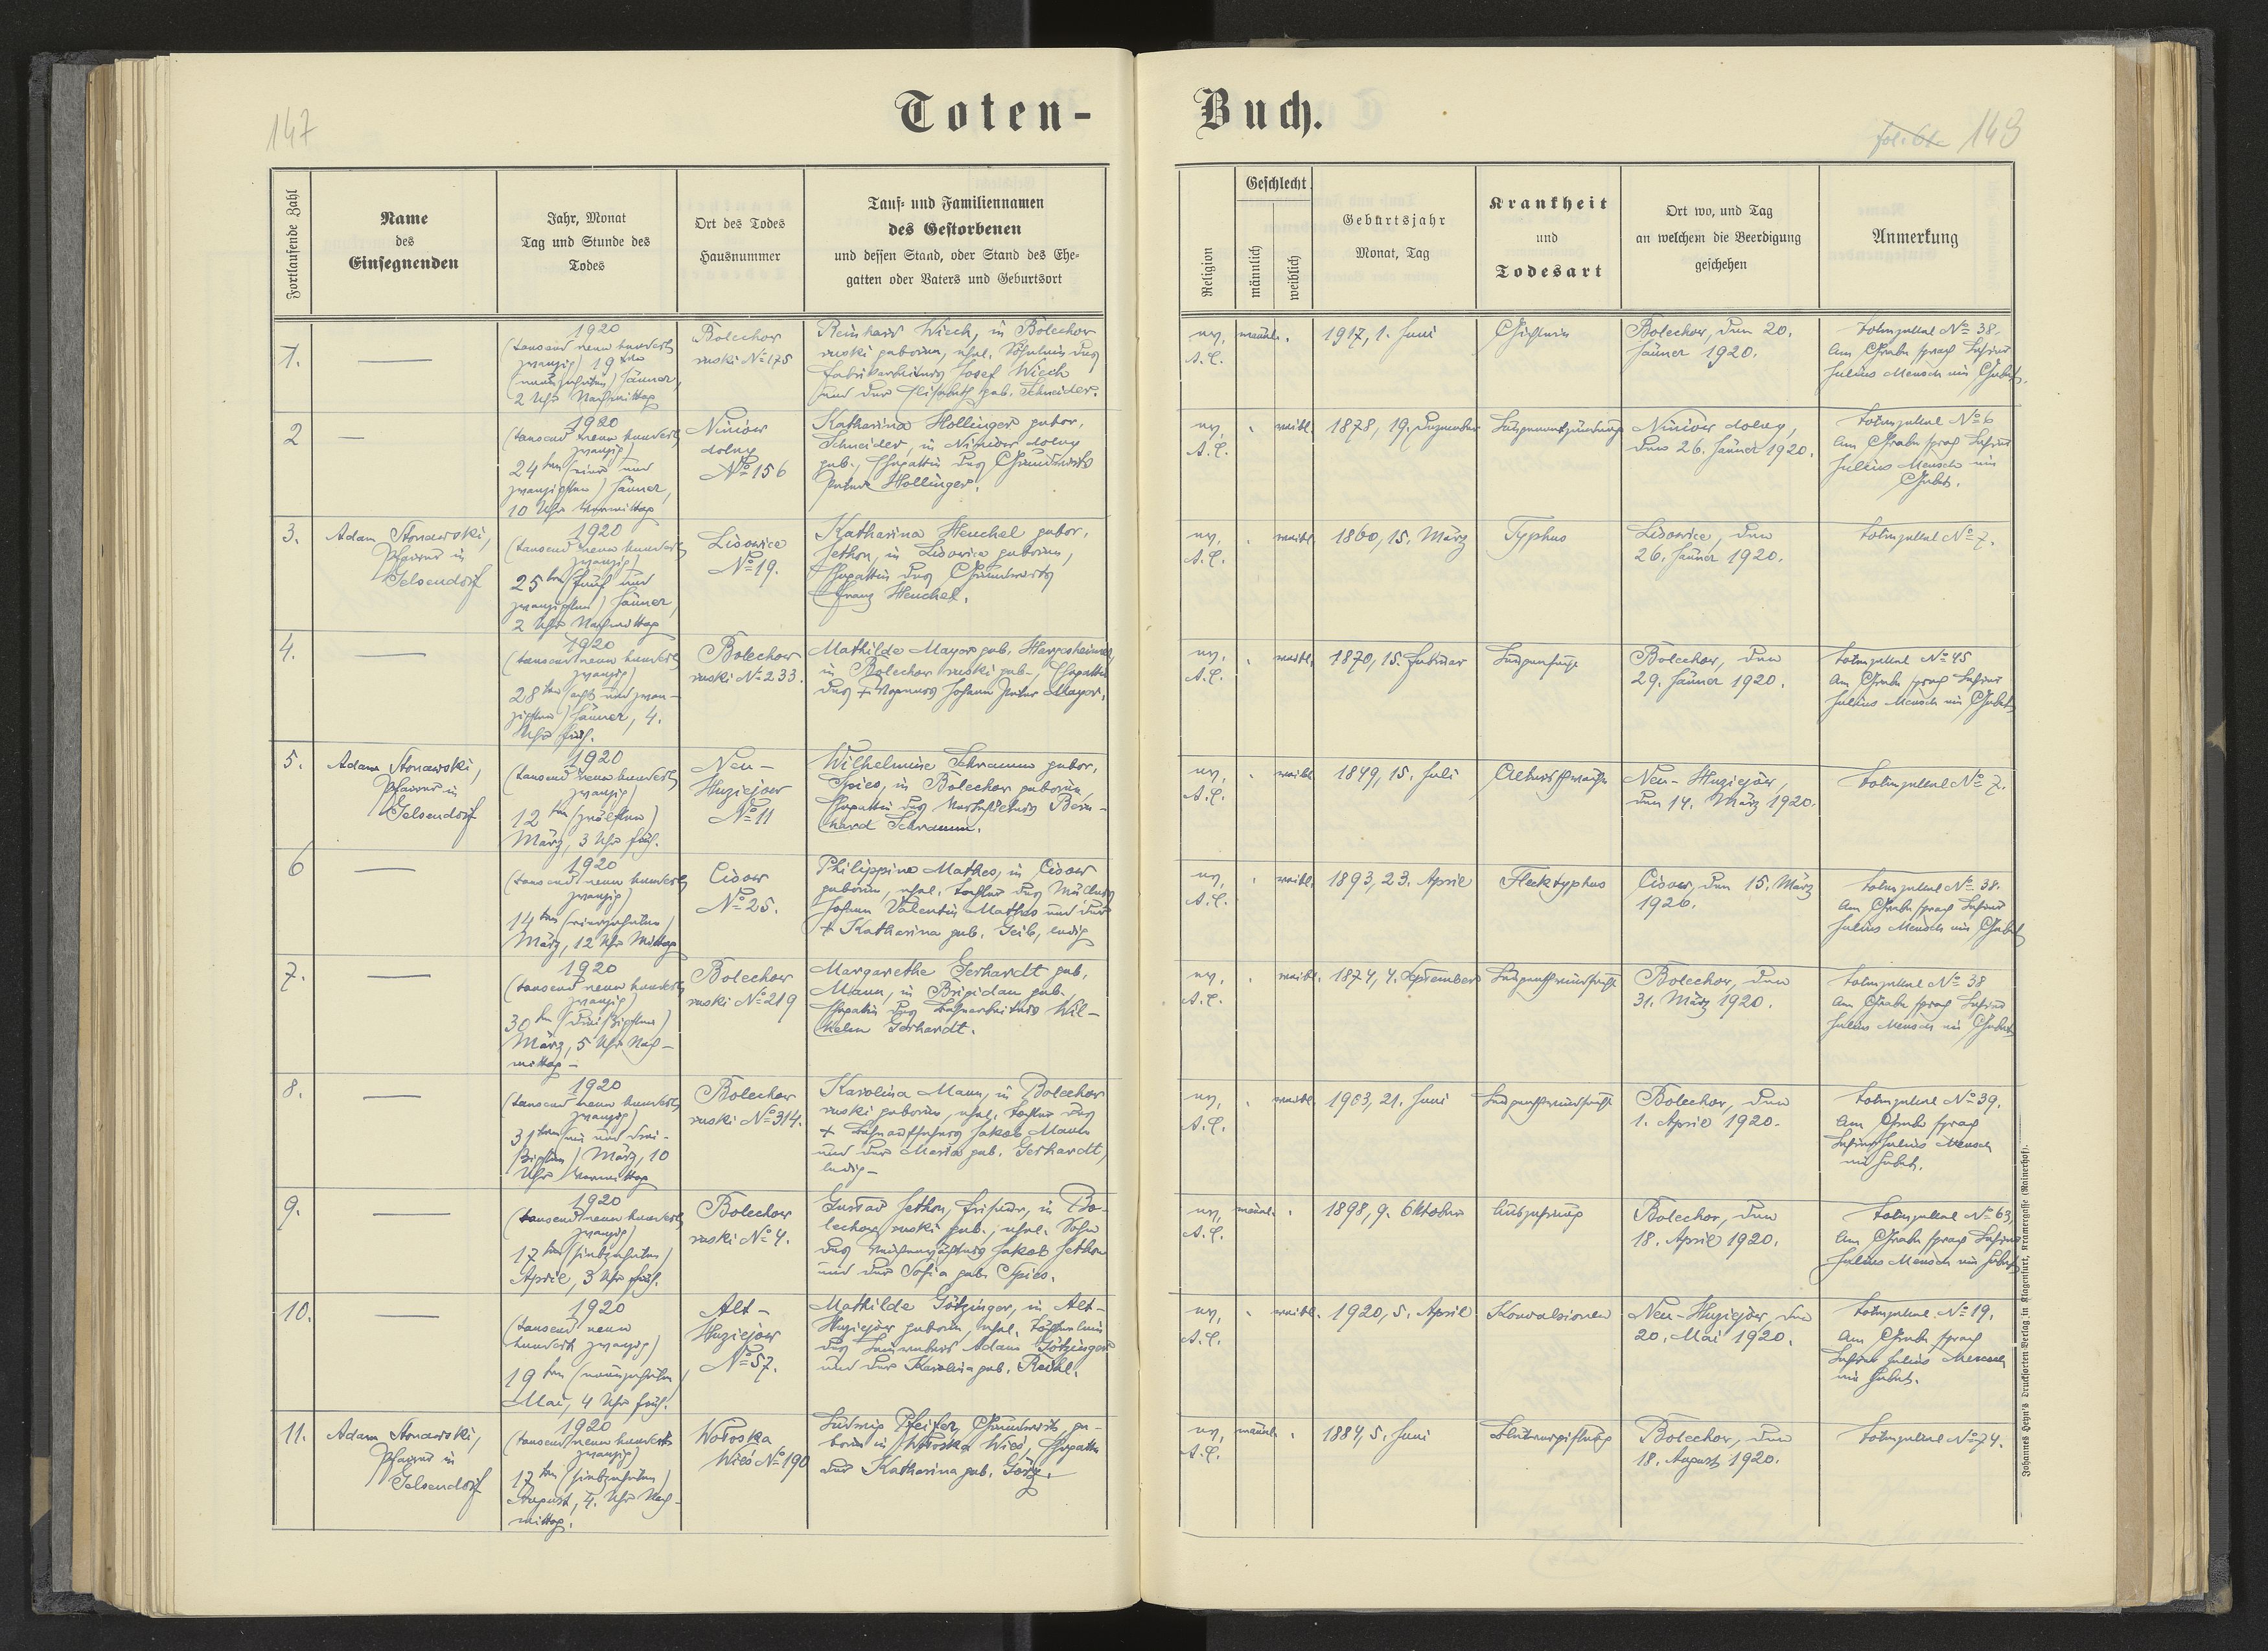 147
Toten-
Fortlaufende Zahl
Name
des
Einsegnenden
Jahr, Monat
Tag und Stunde des
Todes
Ort des Todes
Hausnummer
Tauf- und Familiennamen
des Gestorbenen
und dessen Stand, oder Stand des Ehe-
gatten oder Vaters und Geburtsort
1.
1920
(tausend neun hundert
zwanzig) 19ten
(neunzehnten) Jänner,
2 Uhr Nachmittag
Bolechow
ruski No 175
Reinhard Wiech, in Bolechow
ruski geboren, ehel. Söhnlein des
Fabrikarbeiters Josef Wiech
und der Elisabeth geb. Schneider.
2
1920
(tausend neun hundert
zwanzig)
24ten (vier und
zwanzigsten) Jänner,
10 Uhr Vormittag
Niniow
dolny
No 156
Katharina Hollinger gebor.
Schneider, in Niniow dolny
geb., Ehegattin des Grundwirts
Peter Hollinger.
3.
Adam Stonawski,
Pfarrer in
Gelsendorf
1920
(tausend neun hundert
zwanzig)
25ten (fünf und
zwanzigsten) Jänner,
2 Uhr Nachmittag
Lisowice
No 19.
Katharina Henchel gebor.
Jethon, in Lisowice geboren,
Ehegattin des Grundwirts
Franz Henchel.
4.
1920
(tausend neun hundert
zwanzig)
28ten (acht und zwan-
zigsten) Jänner, 4.
Uhr früh.
Bolechow
ruski No 233.
Mathilde Mayer geb.
in Bolechow ruski geb., Ehegattin
des + Wagners Johann Peter Mayer.
5.
Adam Stonawski,
Pfarrer in
Gelsendorf
1920
(tausend neun hundert
zwanzig)
12ten (zwölften)
März, 3 Uhr früh.
Neu-
Huziejow
No 11
Wilhelmine Schramm gebor.
Spies, in Bolechow geboren,
Ehegattin des Rein-
hard Schramm.
6
1920
(tausend neun hundert
zwanzig)
14ten (vierzehnten)
März, 12 Uhr Mittag
Cisow
No 25.
Philippine Mathes, in Cisow
geboren, ehel. Tochter des Müllers
Johann Valentin Mathes und der
+ Katharina geb. Geib, ledig
7.
1920
(tausend neun hundert
zwanzig)
30ten (dreißigsten)
März, 5 Uhr Nach-
mittag-
Bolechow
ruski No 219
Margarethe Gerhardt geb.
Mann, in Brigidau geb.
Ehegattin des Bahnarbeiters Wil-
helm Gerhardt.
8.
1920
(tausend neun hundert
zwanzig)
31ten (ein und drei-
ßigsten) März, 10
Uhr Vormittag
Bolechow
ruski No 314.
Karolina Mann, in Bolechow
ruski geboren, ehel. Tochter des
+ Bahnaufsehers Jakob Mann
und der Maria geb. Gerhardt,
ledig-
9.
1920
(tausend neun hundert
zwanzig)
17ten (siebzehnten)
April, 3 Uhr früh.
Bolechow
ruski No 4.
Gustav Jethon, Friseur, in Bo-
lechow ruski geb., ehel. Sohn
des Jakob Jethon
und der Sofia geb. Spies.
10.
1920
(tausend neun
hundert zwanzig)
19ten (neunzehnten)
Mai, 4 Uhr früh.
Alt-
Huziejow
No 57.
Mathilde Götzinger, in Alt-
Huziejow geboren, ehel. Töchterlein
des Adam Götzinger
und der Karolina geb.
11.
Adam Stonawski,
Pfarrer in
Gelsendorf
1920
(tausend neun hundert
zwanzig)
17ten (siebzehnten)
August, 4. Uhr Nach-
mittag.
Wołoska
Wieś No 190
Ludwig Pfeifer, Grundwirt, ge-
boren in Wołoska Wieś, Ehegatte
der Katharina geb. Görz.
Buch.
fol. 61. 148
Religion
Geschlecht
männlich
weiblich
Geburtsjahr
Monat, Tag
Krankheit
und
Todesart
Ort wo, und Tag
an welchem die Beerdigung
geschehen
Anmerkung
ev.
A.C.
männl.
1917, 1. Juni
Bolechow, den 20.
Jänner 1920.
Totenzettel No 38.
Am Grabe sprach Lehrer
Julius Mensch ein Gebet.
ev.
A.C.
weibl.
1878, 19. Dezember
Lungenentzündung
Niniow dolny,
den 26. Jänner 1920.
Totenzettel No 6
Am Grabe sprach Lehrer
Julius Mensch ein
Gebet.
ev.
A.C.
weibl.
1860, 15. März
Typhus
Lisowice, den
26. Jänner 1920.
Totenzettel No 7.
ev.
A.C.
weibl.
1870, 15. Februar
Bolechow, den
29. Jänner 1920.
Totenzettel No 45
Am Grabe sprach Lehrer
Julius Mensch ein Gebet
ev.
A.C.
weibl.
1849, 15. Juli
Altersschwäche
Neu-Huziejów,
den 14. März 1920.
Totenzettel No 7.
ev.
A.C.
weibl.
1893, 23. April
Flecktyphus
Cisow, den 15. März
1920.
Totenzettel No 38.
Am Grabe sprach Lehrer
Julius Mensch ein Gebet
ev.
A.C.
weibl.
1874, 4. September
Lungenschwindsucht
Bolechow, den
31. März 1920.
Totenzettel No 38
Am Grabe sprach Lehrer
Julius Mensch ein Gebet
ev.
A.C.
weibl.
1903, 21. Juni
Lungenschwindsucht
Bolechow, den
1. April 1920.
Totenzettel No 39.
Am Grabe sprach
Lehrer Julius Mensch
ein Gebet.
ev.
A.C.
männl.
1898, 9. Oktober
Auszehrung
Bolechow, den
18. April 1920.
Totenzettel No 63,
Am Grabe sprach Lehrer
Julius Mensch ein Gebet
ev.
A.C.
weibl.
1920, 5. April
Konvulsionen
Neu-Huziejów, den
20. Mai 1920.
Totenzettel No 19.
Am Grabe sprach
Lehrer Julius Mensch
ein Gebet.
ev.
A.C.
männl.
1884, 5. Juni
Blutvergiftung
Bolechow, den
18. August 1920.
Totenzettel No 74.
Johannes Heyn's Drucksorten Verlag in Klagenfurt, Kramergasse (Rainerhof).